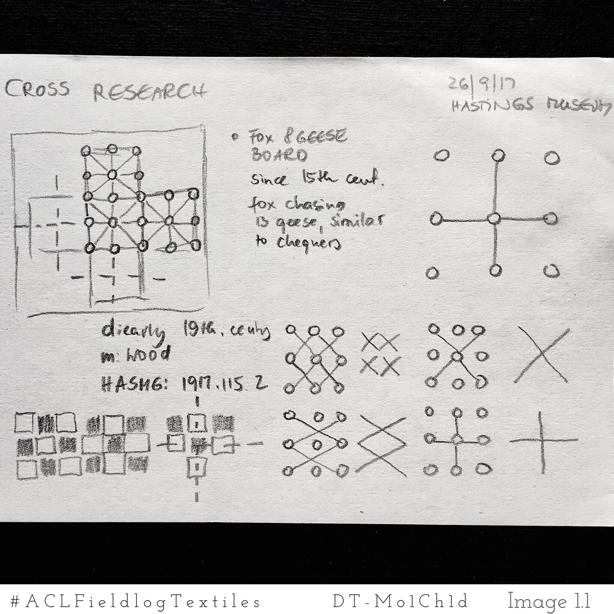 CROSS RESEARCH
26/9/17
HASTINGS MUSEUM
• FOX & GEESE
BOARD
since 15th cent.
fox chasing
13 geese, similar
to chequers
d: early 19th. centy
m: WOOD
HASMG: 1917.115.2
#ACLFieldlogTextiles DT-Mo1Ch1d Image 1.1